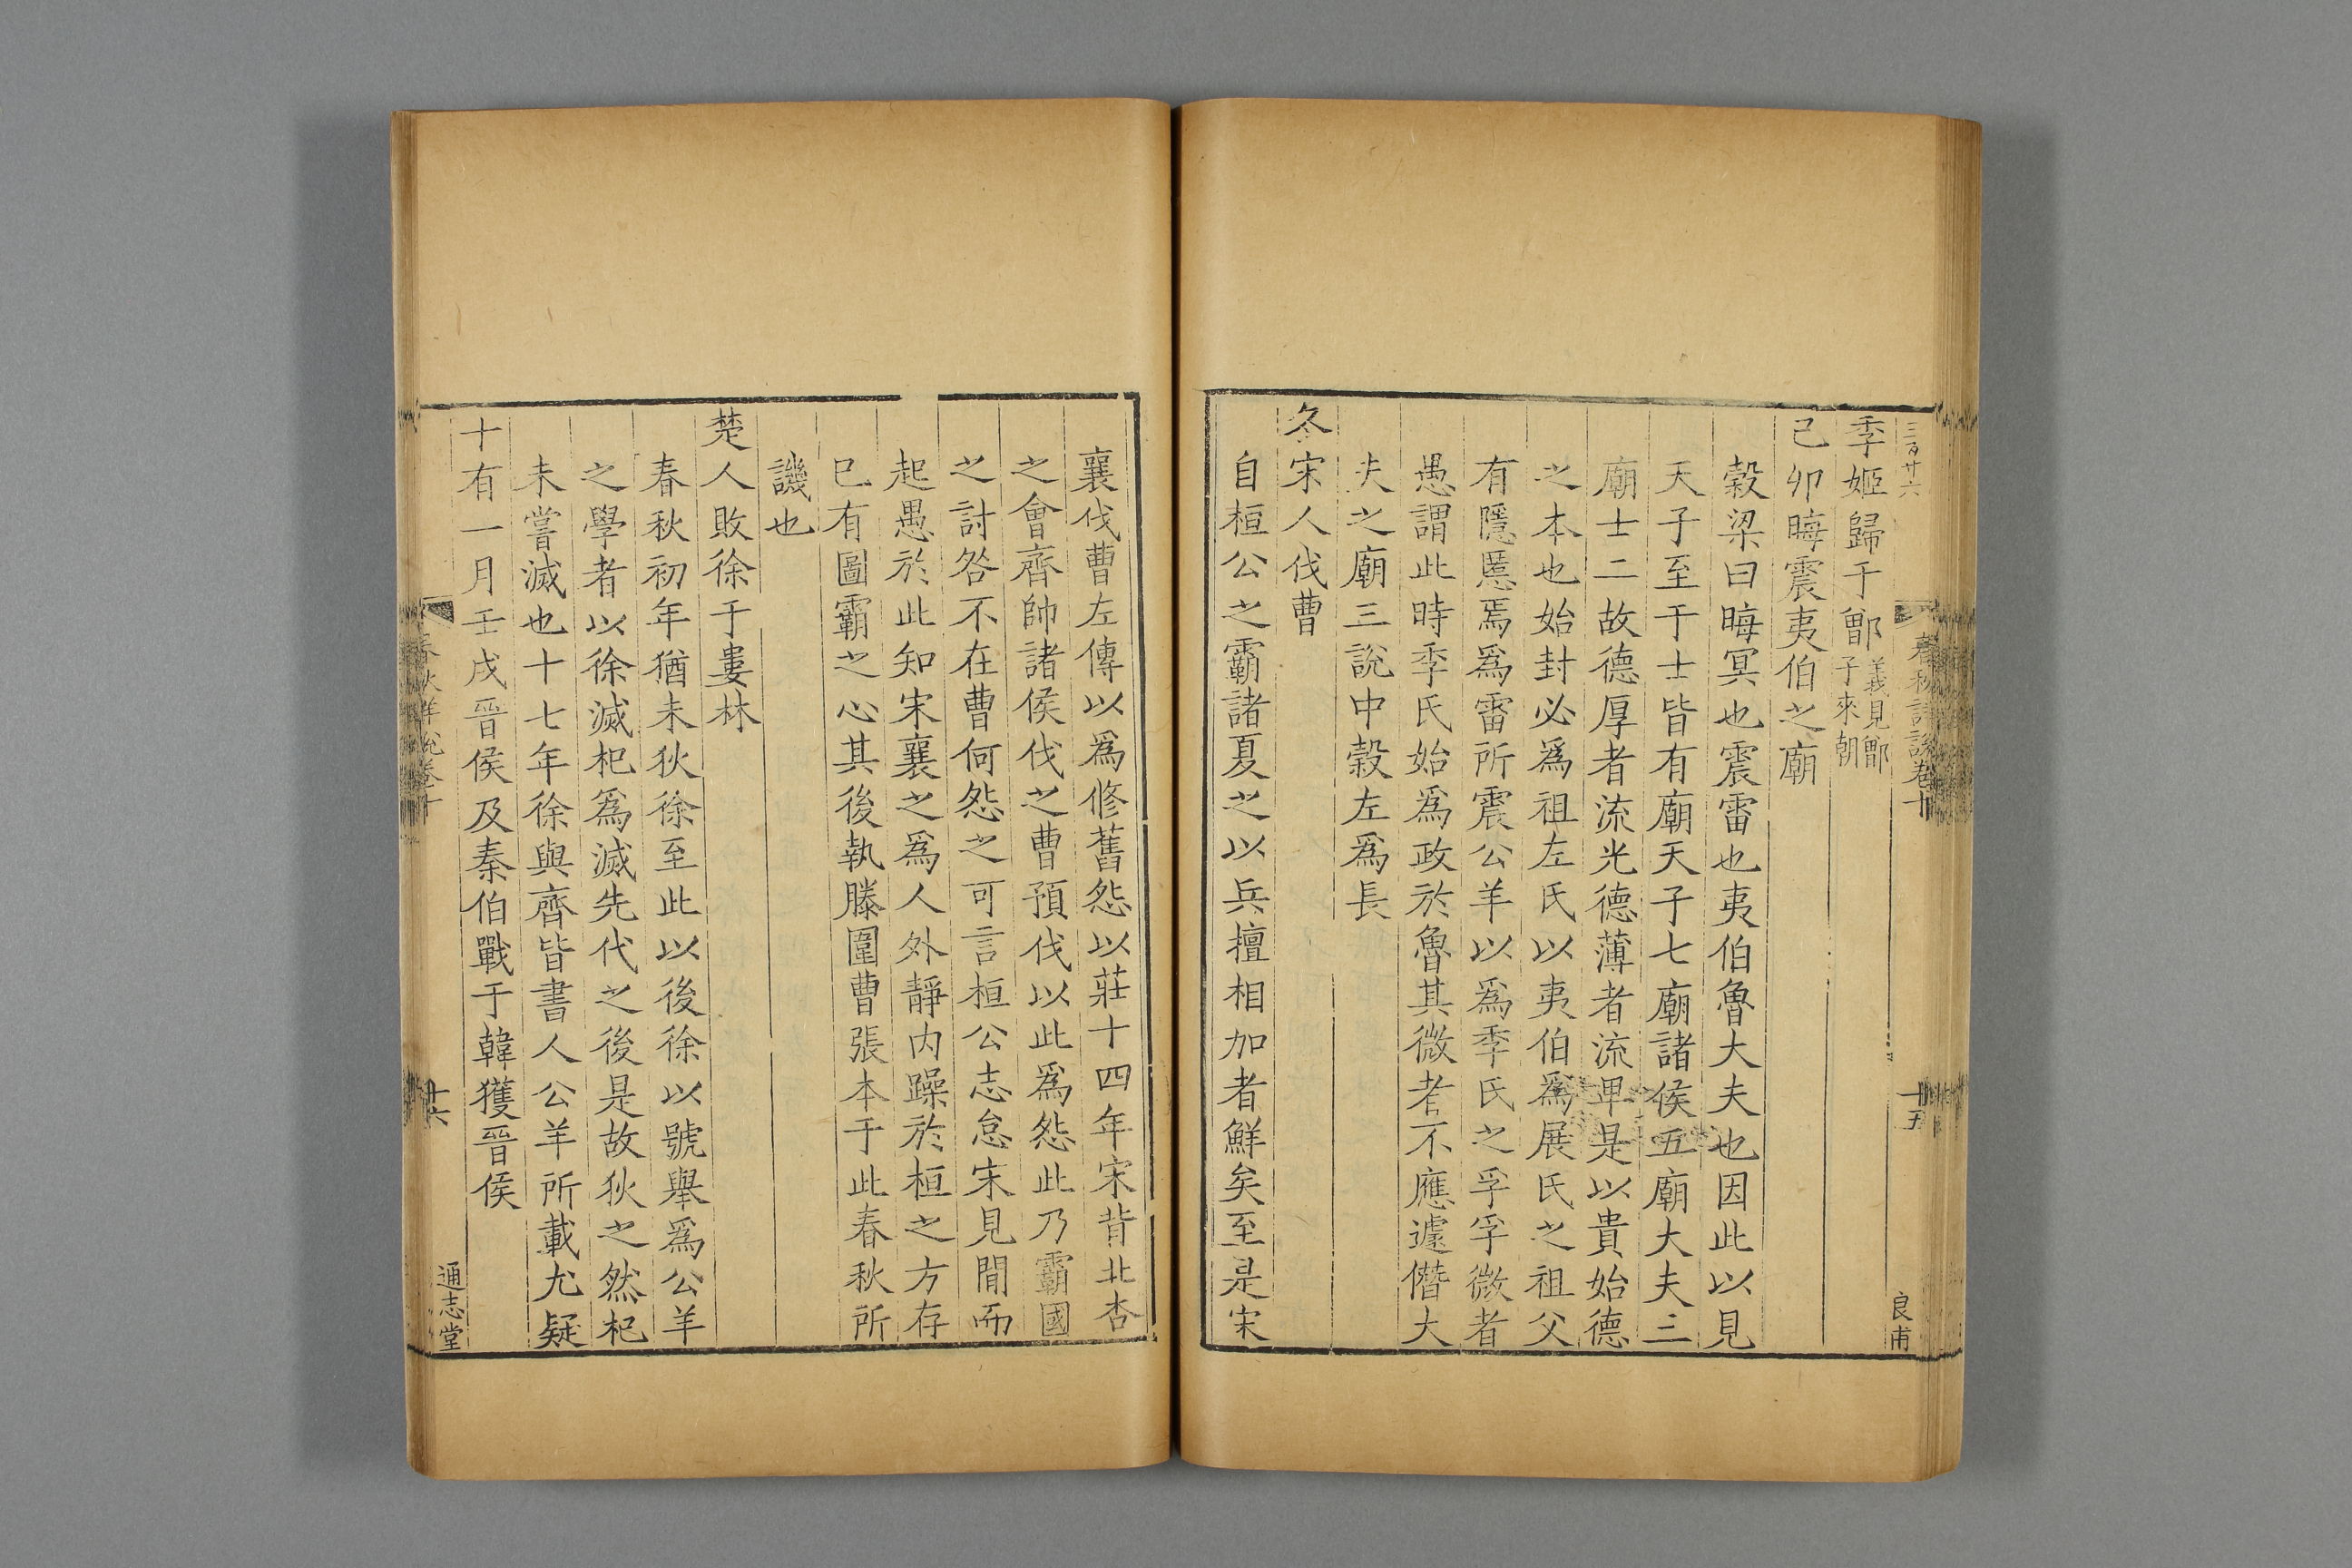 三百廿六
春秋詳說卷十
十五
良甫
季姬歸于鄫 義見鄫子來朝
己卯晦震夷伯之廟
穀梁曰晦冥也震雷也夷伯魯大夫也因此以見
天子至于士皆有廟天子七廟諸侯五廟大夫三
廟士二故德厚者流光德薄者流卑是以貴始德
之本也始封必為祖左氏以夷伯為展氏之祖父
有隱慝焉為雷所震公羊以為季氏之孚孚微者
愚謂此時季氏始為政於魯其微者不應遽僭大
夫之廟三說中穀左為長
冬宋人伐曹
自桓公之霸諸夏之以兵擅相加者鮮矣至是宋
襄伐曹左傳以為修舊怨以莊十四年宋背北杏
之會齊帥諸侯伐之曹預伐以此為怨此乃霸國
之討咎不在曹何怨之可言桓公志怠宋見閒而
起愚於此知宋襄之為人外靜内躁於桓之方存
已有圖霸之心其後執滕圍曹張本于此春秋所
譏也
楚人敗徐于婁林
春秋初年猶未狄徐至此以後徐以號舉為公羊
之學者以徐滅杞為滅先代之後是故狄之然杞
未嘗滅也十七年徐與齊皆書人公羊所載尤疑
十有一月壬戌晉侯及秦伯戰于韓獲晉侯
春秋詳說卷十
十六
通志堂